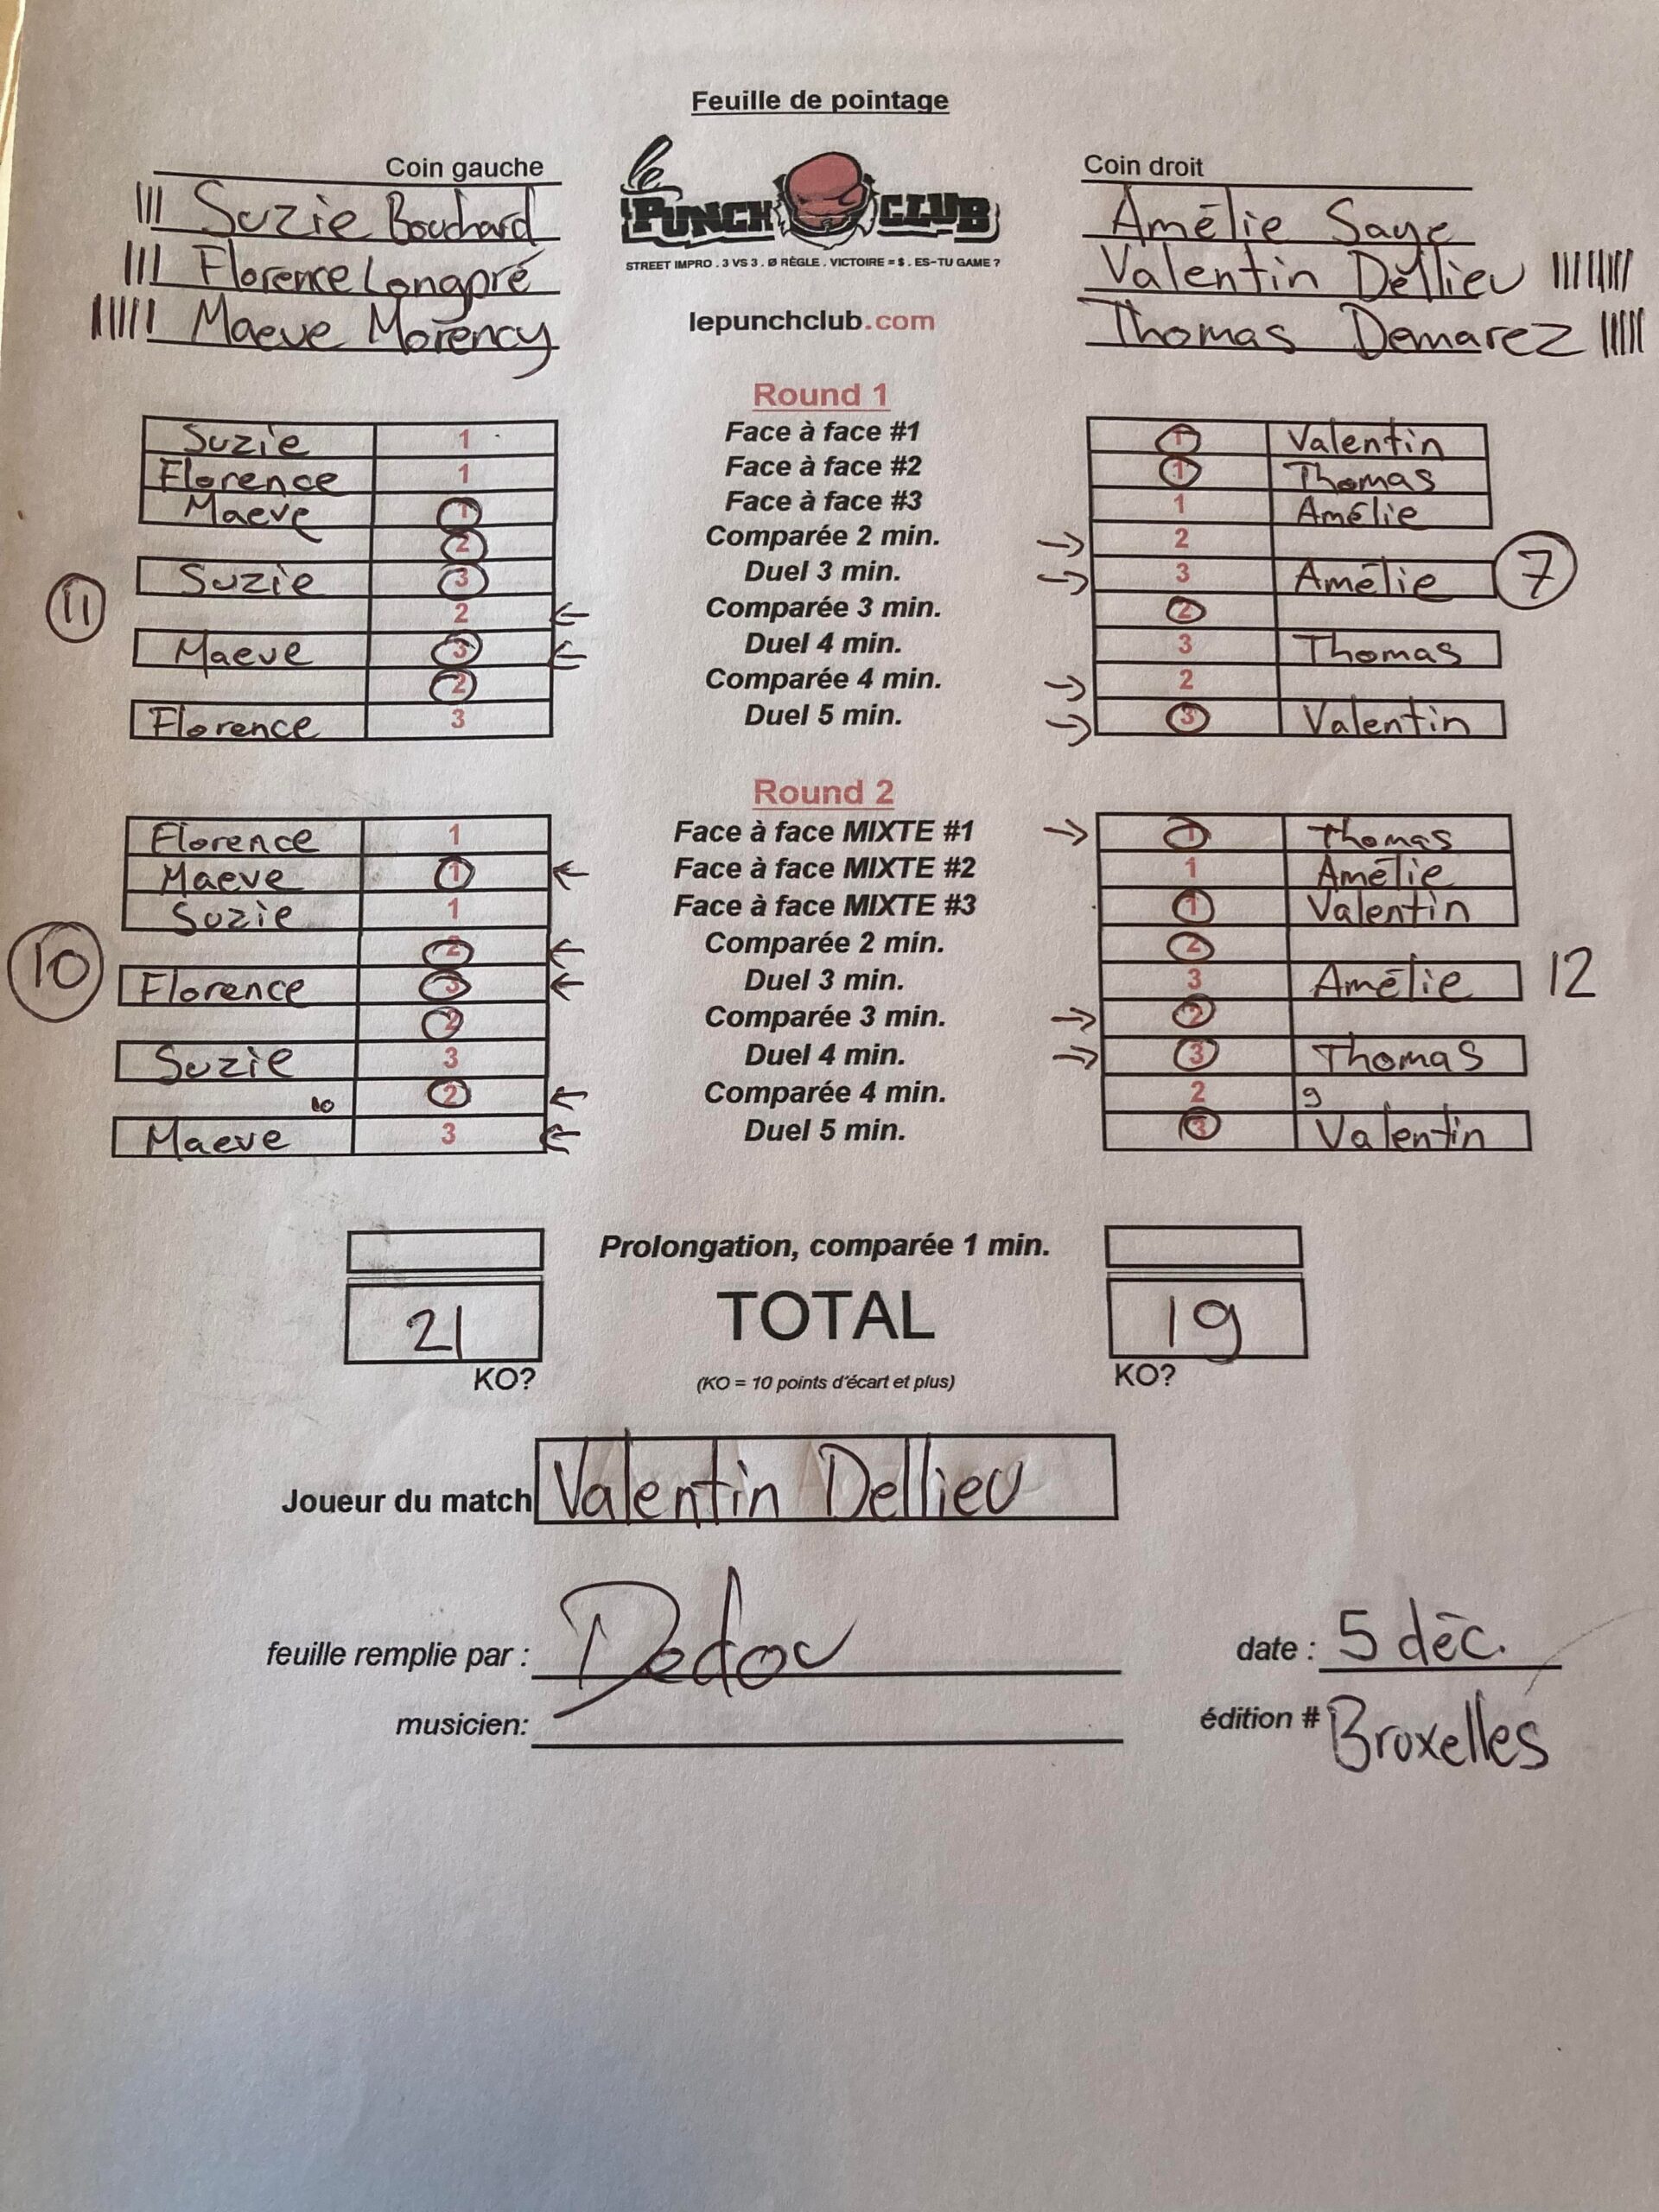 Feuille de pointage
Coin gauche
Coin droit
||| Suzie Bouchard
||| Florence Longpré
||||| Maeve Morency
le PUNCH CLUB
STREET IMPRO . 3 VS 3 . Ø RÈGLE . VICTOIRE = $ . ES-TU GAME ?
lepunchclub.com
Amélie Saye
Valentin Dellieu ||||||||
Thomas Demarez |||||
Round 1
Suzie 1 Face à face #1 1 Valentin
Florence 1 Face à face #2 1 Thomas
Maeve 1 Face à face #3 1 Amélie
2 Comparée 2 min. → 2
Suzie 3 Duel 3 min. → 3 Amélie 7
11 2 ← Comparée 3 min. 2
Maeve 3 ← Duel 4 min. 3 Thomas
2 Comparée 4 min. → 2
Florence 3 Duel 5 min. → 3 Valentin
Round 2
Florence 1 Face à face MIXTE #1 → 1 Thomas
Maeve 1 ← Face à face MIXTE #2 1 Amélie
Suzie 1 Face à face MIXTE #3 1 Valentin
2 ← Comparée 2 min. 2
10 Florence 3 ← Duel 3 min. 3 Amélie 12
2 Comparée 3 min. → 2
Suzie 3 Duel 4 min. → 3 Thomas
10 2 ← Comparée 4 min. 2 9
Maeve 3 ← Duel 5 min. 3 Valentin
Prolongation, comparée 1 min.
21 TOTAL 19
KO? (KO = 10 points d'écart et plus) KO?
Joueur du match Valentin Dellieu
feuille remplie par : Dedou date : 5 déc.
musicien: édition # Bruxelles